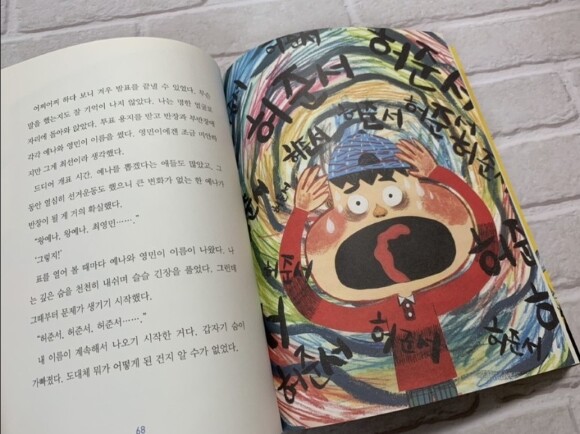 어찌어찌 하다 보니 겨우 발표를 끝낼 수 있었다. 무슨
말을 했는지도 잘 기억이 나지 않았다. 나는 멍한 얼굴로
자리에 돌아와 앉았다. 투표 용지를 받고 반장과 부반장에
각각 예나와 영민이 이름을 썼다. 영민이에겐 조금 미안하
지만 그게 최선이라 생각했다.
드디어 개표 시간. 예나를 뽑겠다는 애들도 많았고, 그
동안 열심히 선거운동도 했으니 큰 변화가 없는 한 예나가
반장이 될 게 거의 확실했다.
"왕예나, 왕예나, 최영민……."
'그렇지!'
표를 열어 볼 때마다 예나와 영민이 이름이 나왔다. 나
는 깊은 숨을 천천히 내쉬며 슬슬 긴장을 풀었다. 그런데
그때부터 문제가 생기기 시작했다.
"허준서, 허준서, 허준서……."
내 이름이 계속해서 나오기 시작한 거다. 갑자기 숨이
가빠졌다. 도대체 뭐가 어떻게 된 건지 알 수가 없었다.
68
허준서
허준서
허준서
허준서
허준서
허준서
허준
허준서
허준서
허준서